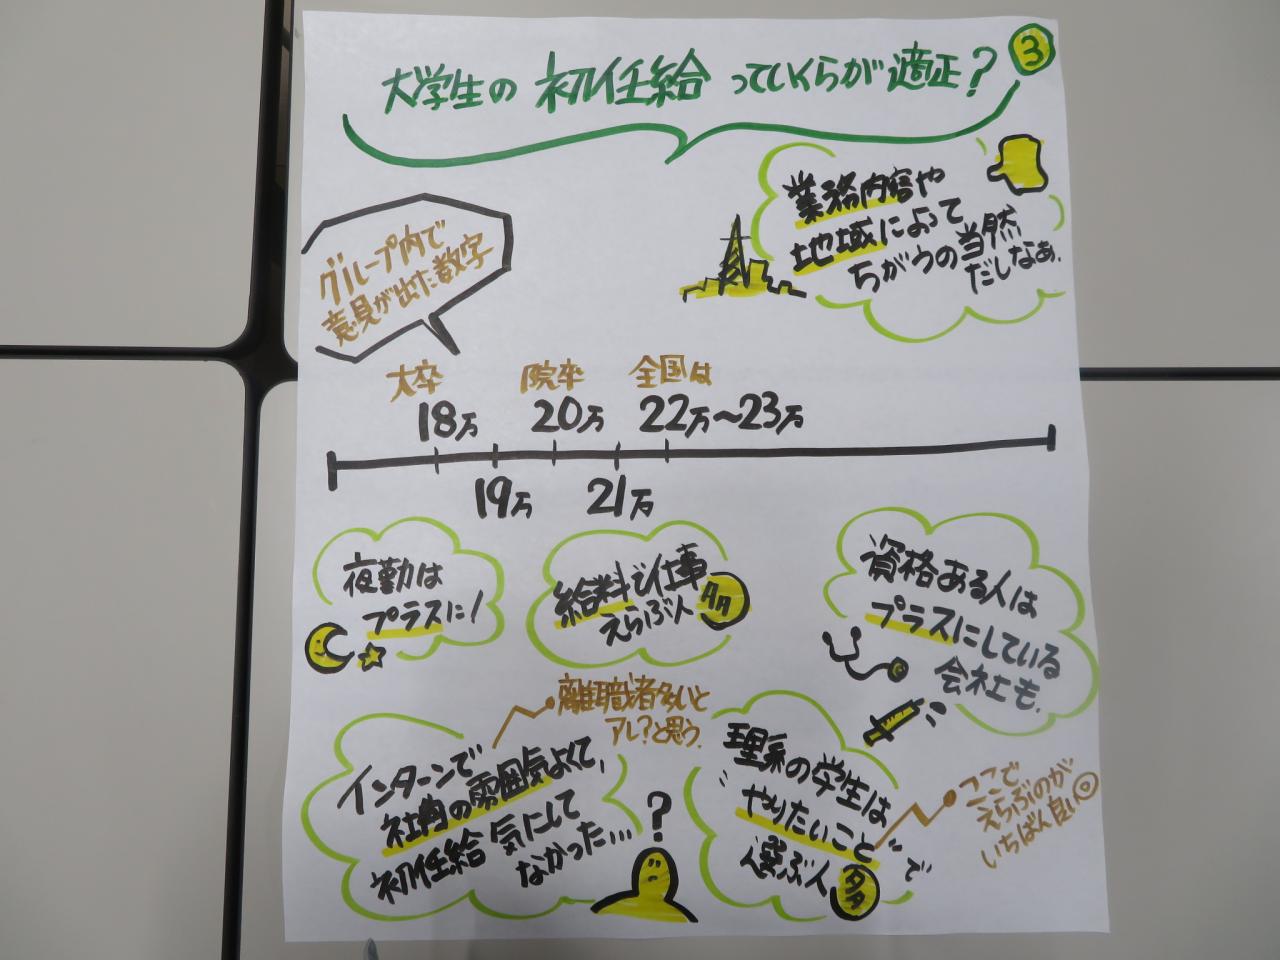 大学生の初任給っていくらが適正？
3
業務内容や
地域によって
ちがうの当然
だしなぁ.
グループ内で
意見が出た数字
大卒
18万
院卒
20万
全国は
22万～23万
19万
21万
夜勤は
プラスに!
給料で仕事
えらぶ人
多
資格ある人は
プラスにしている
会社も.
離職者多いと
アレ?と思う.
インターンで
社内の雰囲気よくて,
初任給気にして
なかった…
?
理系の学生は
"やりたいこと"で
選ぶ人多
ここで
えらぶのが
いちばん良い◎